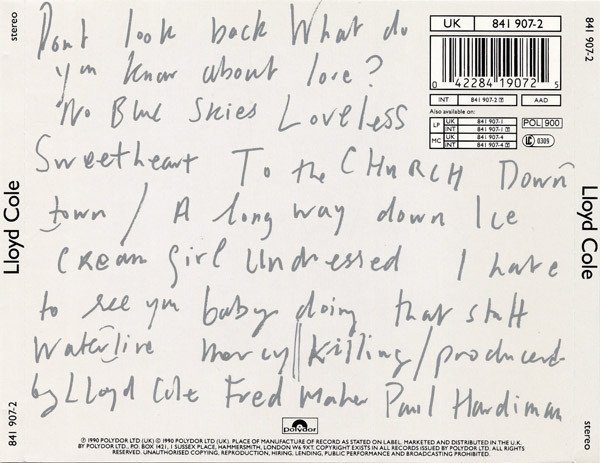 Dont look back What do
you know about love?
No Blue Skies Loveless
Sweetheart To the CHURCH Down
town / A long way down Ice
Cream Girl Undressed I hate
to see you baby doing that stuff
Waterline mercy Killing / produced
by Lloyd Cole Fred Maher Paul Hardiman
stereo
Lloyd Cole
841 907-2
UK 841 907-2
0 42284 19072 5
INT 841 907-2 AAD
Also available on:
LP UK 841 907-1
INT 841 907-1
MC UK 841 907-4
INT 841 907-4
POL 900
LC 0309
841 907-2
Lloyd Cole
stereo
Polydor
℗ 1990 POLYDOR LTD (UK) © 1990 POLYDOR LTD (UK). PLACE OF MANUFACTURE OF RECORD AS STATED ON LABEL. MARKETED AND DISTRIBUTED IN THE U.K.
BY POLYDOR LTD., P.O. BOX 1421, 1 SUSSEX PLACE, HAMMERSMITH, LONDON W6 9XT. COPYRIGHT EXISTS IN ALL RECORDS ISSUED BY POLYDOR LTD.
UNAUTHORISED COPYING, REPRODUCTION, HIRING, LENDING, PUBLIC PERFORMANCE AND BROADCASTING PROHIBITED.